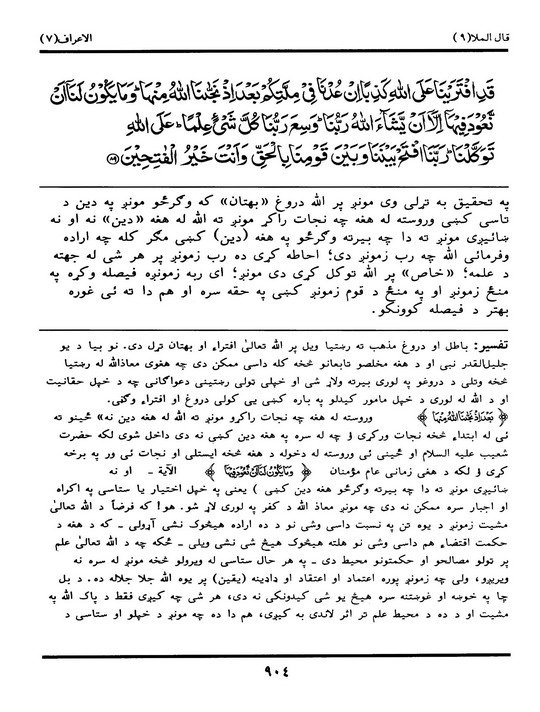 قال الملا(۹) الاعراف(۷)
قَدِ افْتَرَيْنَا عَلَى اللهِ كَذِبًا اِنْ عُدْنَا فِيْ مِلَّتِكُمْ بَعْدَ اِذْ نَجّٰىنَا اللهُ مِنْهَا ؕ وَمَا يَكُوْنُ لَنَاۤ اَنْ
نَّعُوْدَ فِيْهَاۤ اِلَّاۤ اَنْ يَّشَآءَ اللهُ رَبُّنَا ؕ وَسِعَ رَبُّنَا كُلَّ شَیْءٍ عِلْمًا ؕ عَلَى اللهِ
تَوَكَّلْنَا ؕ رَبَّنَا افْتَحْ بَيْنَنَا وَبَيْنَ قَوْمِنَا بِالْحَقِّ وَاَنْتَ خَيْرُ الْفٰتِحِيْنَ ﴿۸۹﴾
په تحقیق به تړلی وی مونږ پر الله دروغ «بهتان» که وګرځو مونږ په دین د
تاسی کښی وروسته له هغه چه نجات راکړ مونږ ته الله له هغه «دین» نه او نه
ښائیږی مونږ ته دا چه بیرته وګرځو په هغه (دین) کښی مګر کله چه اراده
وفرمائی الله چه رب زمونږ دی؛ احاطه کړی ده رب زمونږ پر هر شی له جهته
د علمه؛ «خاص» پر الله توکل کړی دی مونږ؛ ای ربه زمونږه فیصله وکړه په
منځ زمونږ او په منځ د قوم زمونږ کښی په حقه سره او هم دا ته ئی غوره
بهتر د فیصله کوونکو.
تفسیر: باطل او دروغ مذهب ته رښتیا ویل پر الله تعالیٰ افتراء او بهتان تړل دی. نو بیا د یو
جلیل‌القدر نبی او د هغه مخلصو تابعانو څخه کله داسی ممکن دی چه هغوی معاذالله له رښتیا
څخه وتلی د دروغو په لوری بیرته ولاړ شی او خپلی ټولی رښتینی دعواګانی چه د خپل حقانیت
او د الله له لوری د خپل مامور کیدلو په باره کښی یی کولی دروغ او افتراء وګڼی.
﴿بَعْدَ اِذْ نَجّٰىنَا اللهُ مِنْهَا﴾ وروسته له هغه چه نجات راکړو مونږ ته الله له هغه دین نه» ځینو ته
ئی له ابتداء څخه نجات ورکړی ؤ چه له سره په هغه دین کښی نه دی داخل شوی لکه حضرت
شعیب علیه السلام او ځینی ئی وروسته له دخوله د هغه څخه ایستلی او نجات ئی ور په برخه
کړی ؤ لکه د هغی زمانی عام مؤمنان ﴿وَمَا يَكُوْنُ لَنَاۤ اَنْ نَّعُوْدَ فِيْهَا﴾ الآیة ـ او نه
ښائیږی مونږ ته دا چه بیرته وګرځو هغه دین کښی ) یعنی په خپل اختیار یا ستاسی په اکراه
او اجبار سره ممکن نه دی چه مونږ معاذ الله د کفر په لوری لاړ شو. هو! که فرضاً د الله تعالیٰ
مشیت زمونږ د یوه تن په نسبت داسی وشی نو د ده اراده هیڅوک نشی آړولی ـ که د هغه د
حکمت اقتضاء هم داسی وشی نو هلته هیڅوک هیڅ شی نشی ویلی ـ ځکه چه د الله تعالیٰ علم
پر ټولو مصالحو او حکمتونو محیط دی ـ په هر حال ستاسی له ویرولو څخه مونږ له سره نه
ویریږو، ولی چه زمونږ پوره اعتماد او اعتقاد او ډاډینه (یقین) پر یوه الله جلا جلاله ده. د بل
چا په خوښه او غوښتنه سره هیڅ یو شی کیدونکی نه دی، هر شی چه کیږی فقط د پاک الله په
مشیت او د ده د محیط علم تر اثر لاندی به کیږی، هم دا ده چه مونږ د خپلو او ستاسی د
۹۰٤